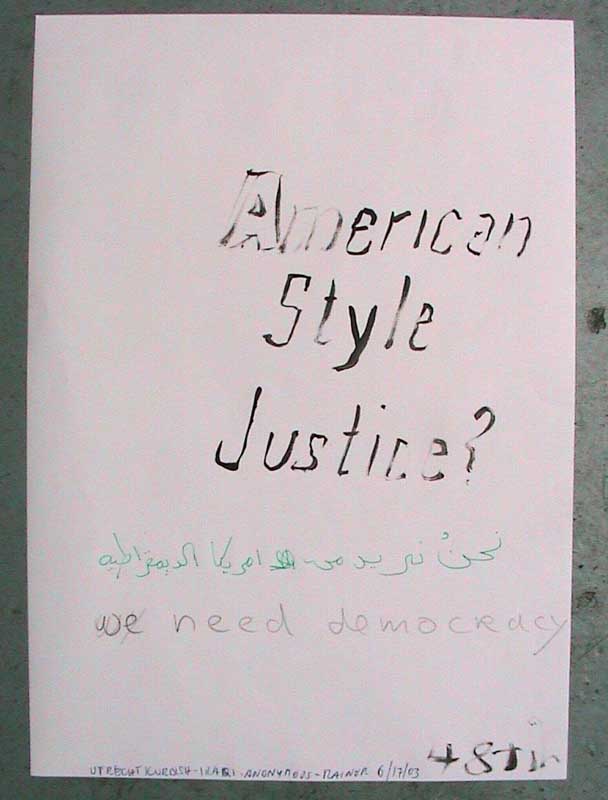 American
Style
Justice?
نحن نريد من امريكا الديمقراطيه
we need democracy
UTRECHT KURDISH-IRAQI-ANONYMOUS-RAINER 6/17/03